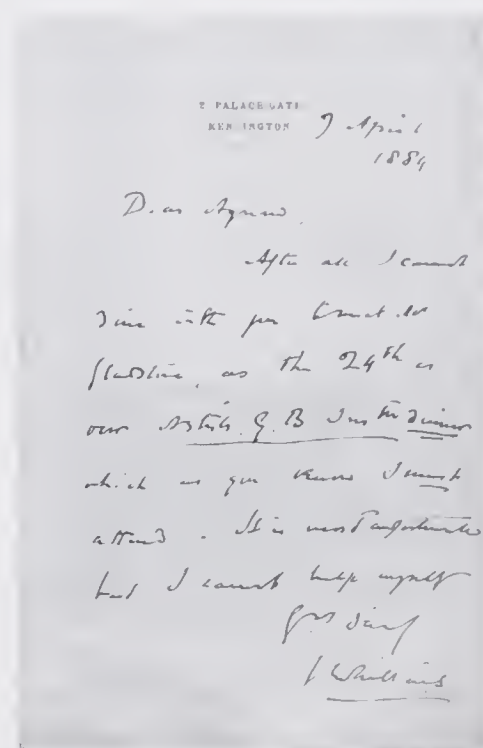 2 PALACE GATE
KENSINGTON 7 April
1884
Dear Agnew.
After all I cannot
dine with you to meet Mr
Gladstone, as the 24th is
our Artists G. B Instn dinner
which as you know I must
attend. It is most unfortunate
but I cannot help myself